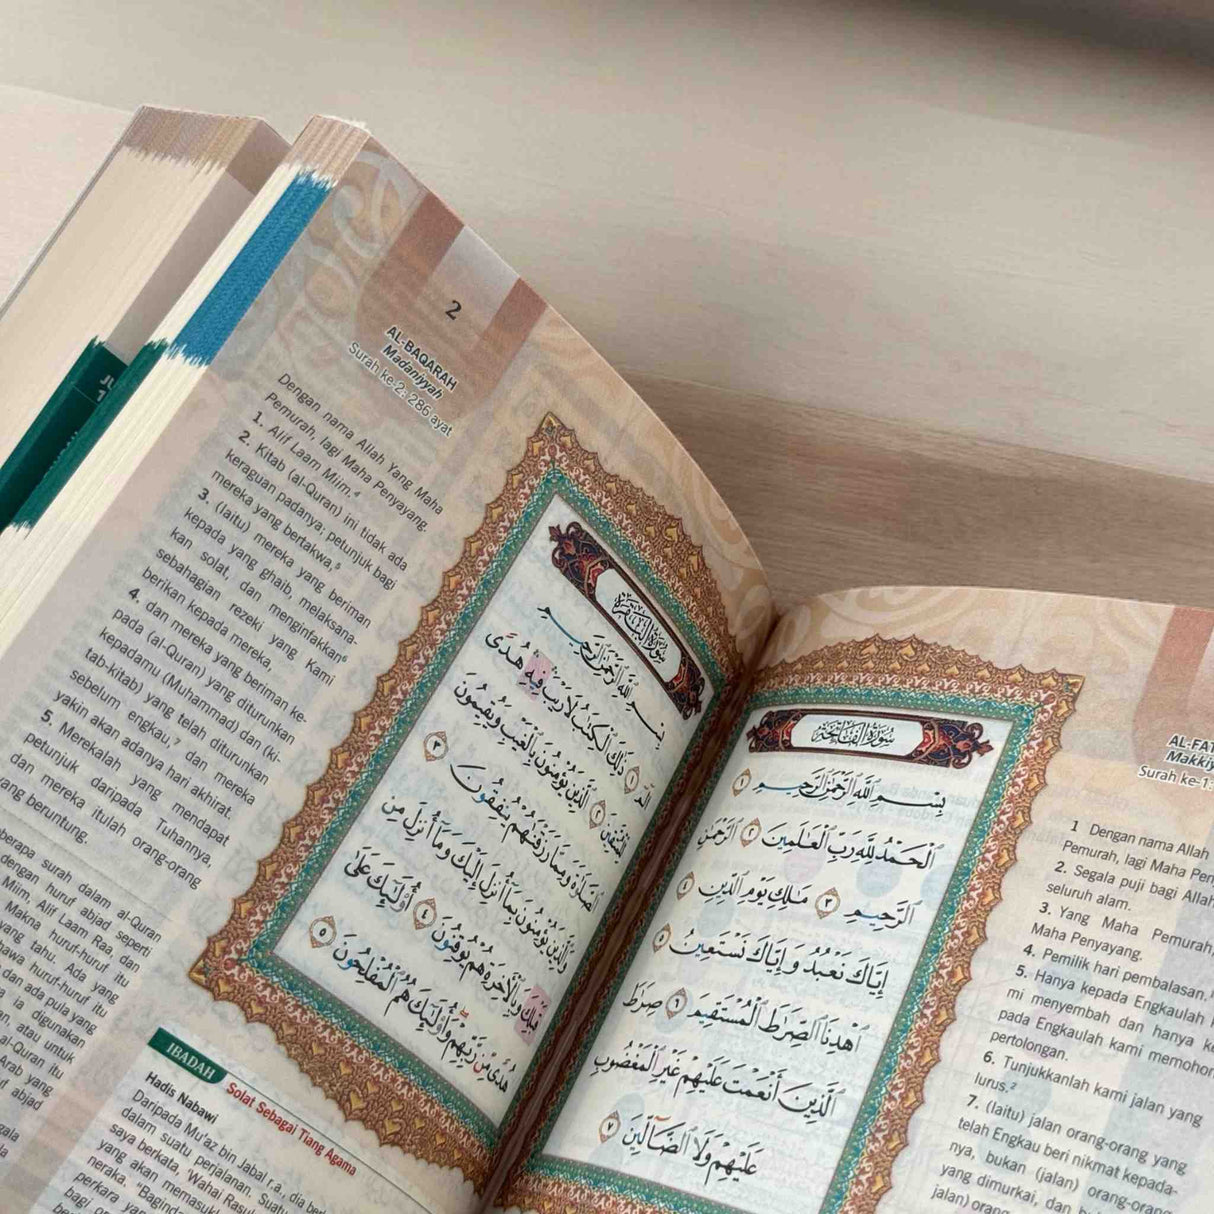 2
AL-BAQARAH
Madaniyyah
Surah ke-2: 286 ayat
Dengan nama Allah Yang Maha
Pemurah, lagi Maha Penyayang.
1. Alif Laam Miim.⁴
2. Kitab (al-Quran) ini tidak ada
keraguan padanya; petunjuk bagi
mereka yang bertakwa,⁵
3. (Iaitu) mereka yang beriman
kepada yang ghaib, melaksana-
kan solat, dan menginfakkan⁶
sebahagian rezeki yang Kami
berikan kepada mereka,
4. dan mereka yang beriman ke-
pada (al-Quran) yang diturunkan
kepadamu (Muhammad) dan (ki-
tab-kitab) yang telah diturunkan
sebelum engkau,⁷ dan mereka
yakin akan adanya hari akhirat.
5. Merekalah yang mendapat
petunjuk daripada Tuhannya,
dan mereka itulah orang-orang
yang beruntung.
berapa surah dalam al-Quran
dengan huruf abjad seperti
Miim, Alif Laam Raa, dan
Makna huruf-huruf itu
yang tahu. Ada yang
huruf-huruf itu
dan ada pula yang
ia digunakan
atau untuk
al-Quran itu
Arab yang
abjad
IBADAH
Solat Sebagai Tiang Agama
Hadis Nabawi
Daripada Mu'az bin Jabal r.a., dia
dalam suatu perjalanan.
saya berkata, 'Wahai
yang akan
neraka.
perkara
bagi
سورة البقرة
بِسْمِ ٱللَّهِ ٱلرَّحْمَٰنِ ٱلرَّحِيمِ
الٓمٓ ١ ذَٰلِكَ ٱلْكِتَٰبُ لَا رَيْبَ فِيهِ هُدًى
لِّلْمُتَّقِينَ ٢ ٱلَّذِينَ يُؤْمِنُونَ بِٱلْغَيْبِ وَيُقِيمُونَ
ٱلصَّلَوٰةَ وَمِمَّا رَزَقْنَٰهُمْ يُنفِقُونَ ٣
وَٱلَّذِينَ يُؤْمِنُونَ بِمَآ أُنزِلَ إِلَيْكَ وَمَآ أُنزِلَ مِن
قَبْلِكَ وَبِٱلْءَاخِرَةِ هُمْ يُوقِنُونَ ٤ أُو۟لَٰٓئِكَ عَلَىٰ
هُدًى مِّن رَّبِّهِمْ وَأُو۟لَٰٓئِكَ هُمُ ٱلْمُفْلِحُونَ ٥
سورة الفاتحة
بِسْمِ ٱللَّهِ ٱلرَّحْمَٰنِ ٱلرَّحِيمِ ١
ٱلْحَمْدُ لِلَّهِ رَبِّ ٱلْعَٰلَمِينَ ٢ ٱلرَّحْمَٰنِ
ٱلرَّحِيمِ ٣ مَٰلِكِ يَوْمِ ٱلدِّينِ ٤
إِيَّاكَ نَعْبُدُ وَإِيَّاكَ نَسْتَعِينُ ٥
ٱهْدِنَا ٱلصِّرَٰطَ ٱلْمُسْتَقِيمَ ٦ صِرَٰطَ
ٱلَّذِينَ أَنْعَمْتَ عَلَيْهِمْ غَيْرِ ٱلْمَغْضُوبِ
عَلَيْهِمْ وَلَا ٱلضَّآلِّينَ ٧
Surah ke-1:
1 Dengan nama Allah
Pemurah, lagi Maha
2. Segala puji bagi Allah,
seluruh alam.
3. Yang Maha Pemurah,
Maha Penyayang.
4. Pemilik hari pembalasan,
5. Hanya kepada Engkaulah
mi menyembah dan hanya
pada Engkaulah kami memohon
pertolongan.
6. Tunjukkanlah kami jalan yang
lurus.²
7. (Iaitu) jalan orang-orang yang
telah Engkau beri nikmat kepada-
nya, bukan (jalan) orang-orang
yang dimurkai, dan
jalan) orang